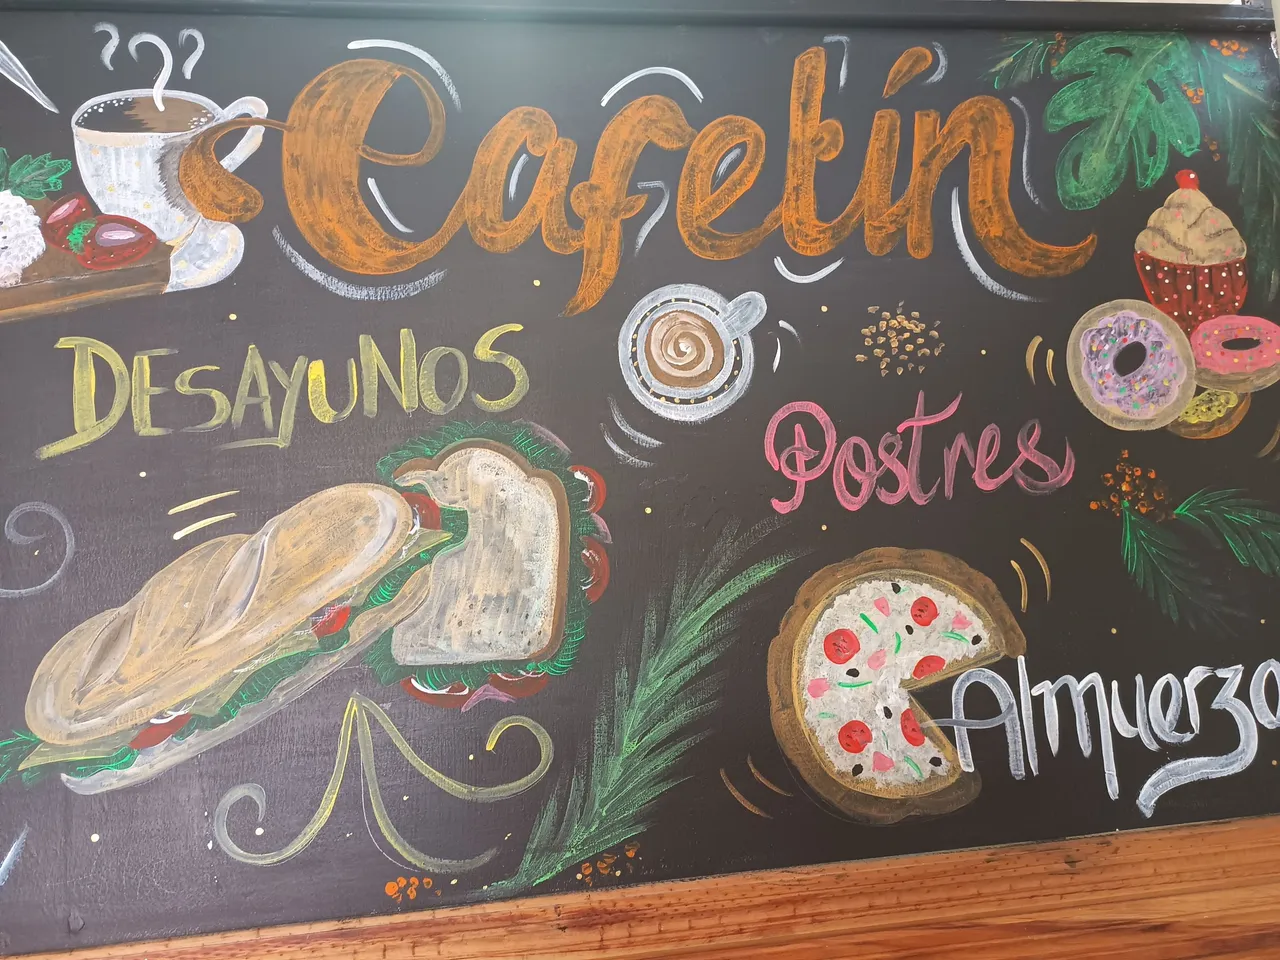 Cafetín
DESAYUNOS
Postres
Almuerzo